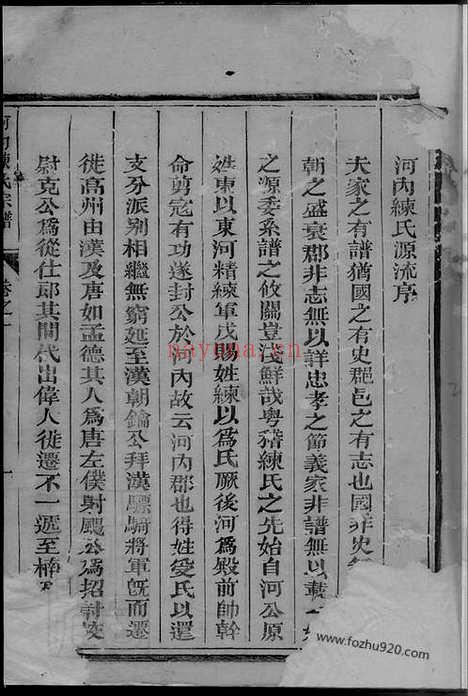 河內練氏源流序
夫家之有譜猶國之有史郡邑之有志也國非史無
朝之盛衰郡非志無以詳忠孝之節義家非譜無以載
之源委系譜之攸關豈淺鮮哉粵稽練氏之先始自河公原
姓東以東河精練軍戎賜姓練以為氏厥後河為殿前帥幹
命剪寇有功遂封公於河內故云河內郡也得姓受氏以還
支分派別相繼無窮延至漢朝鑰公拜漢驃騎將軍旣而遷
徙高州由漢及唐如孟德其人為唐左僕射颺公為招討
尉克公為從仕郎其間代出偉人徙遷不一遞至
河內練氏宗譜
卷之一
nayona.cn
www.fozhu920.com